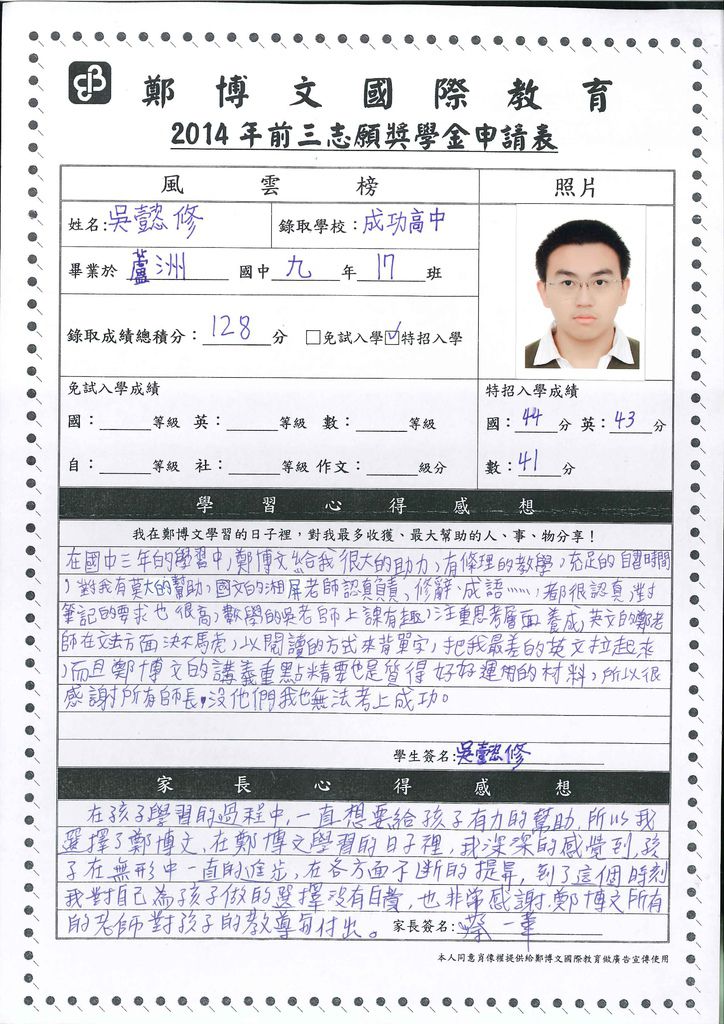 鄭博文國際教育
2014年前三志願獎學金申請表
風雲榜
照片
姓名:吳懿修 錄取學校:成功高中
畢業於 蘆洲 國中 九 年 17 班
錄取成績總積分:128分 □免試入學☑特招入學
免試入學成績
特招入學成績
國:______等級 英:______等級 數:______等級
國:44分 英:43分
自:______等級 社:______等級 作文:______級分
數:41分
學習心得感想
我在鄭博文學習的日子裡,對我最多收獲、最大幫助的人、事、物分享!
在國中三年的學習中,鄭博文給我很大的助力,有條理的教學,充足的自習時間
,對我有莫大的幫助,國文的湘屏老師認真負責、修辭、成語……,都很認真,對
筆記的要求也很高,數學的吳老師上課有趣,注重思考層面養成,英文的鄭老
師在文法方面決不馬虎,以閱讀的方式來背單字,把我最差的英文拉起來
,而且鄭博文的講義重點精要也是值得好好運用的材料,所以很
感謝所有師長,沒他們我也無法考上成功。
學生簽名:吳懿修
家長心得感想
在孩子學習的過程中,一直想要給孩子有力的幫助,所以我
選擇了鄭博文,在鄭博文學習的日子裡,我深深的感覺到,孩
子在無形中一直的進步,在各方面不斷的提昇,到了這個時刻
我對自己為孩子做的選擇沒有白費,也非常感謝,鄭博文所有
的老師對孩子的教導與付出。
家長簽名:蔡一華
本人同意肖像權提供給鄭博文國際教育做廣告宣傳使用